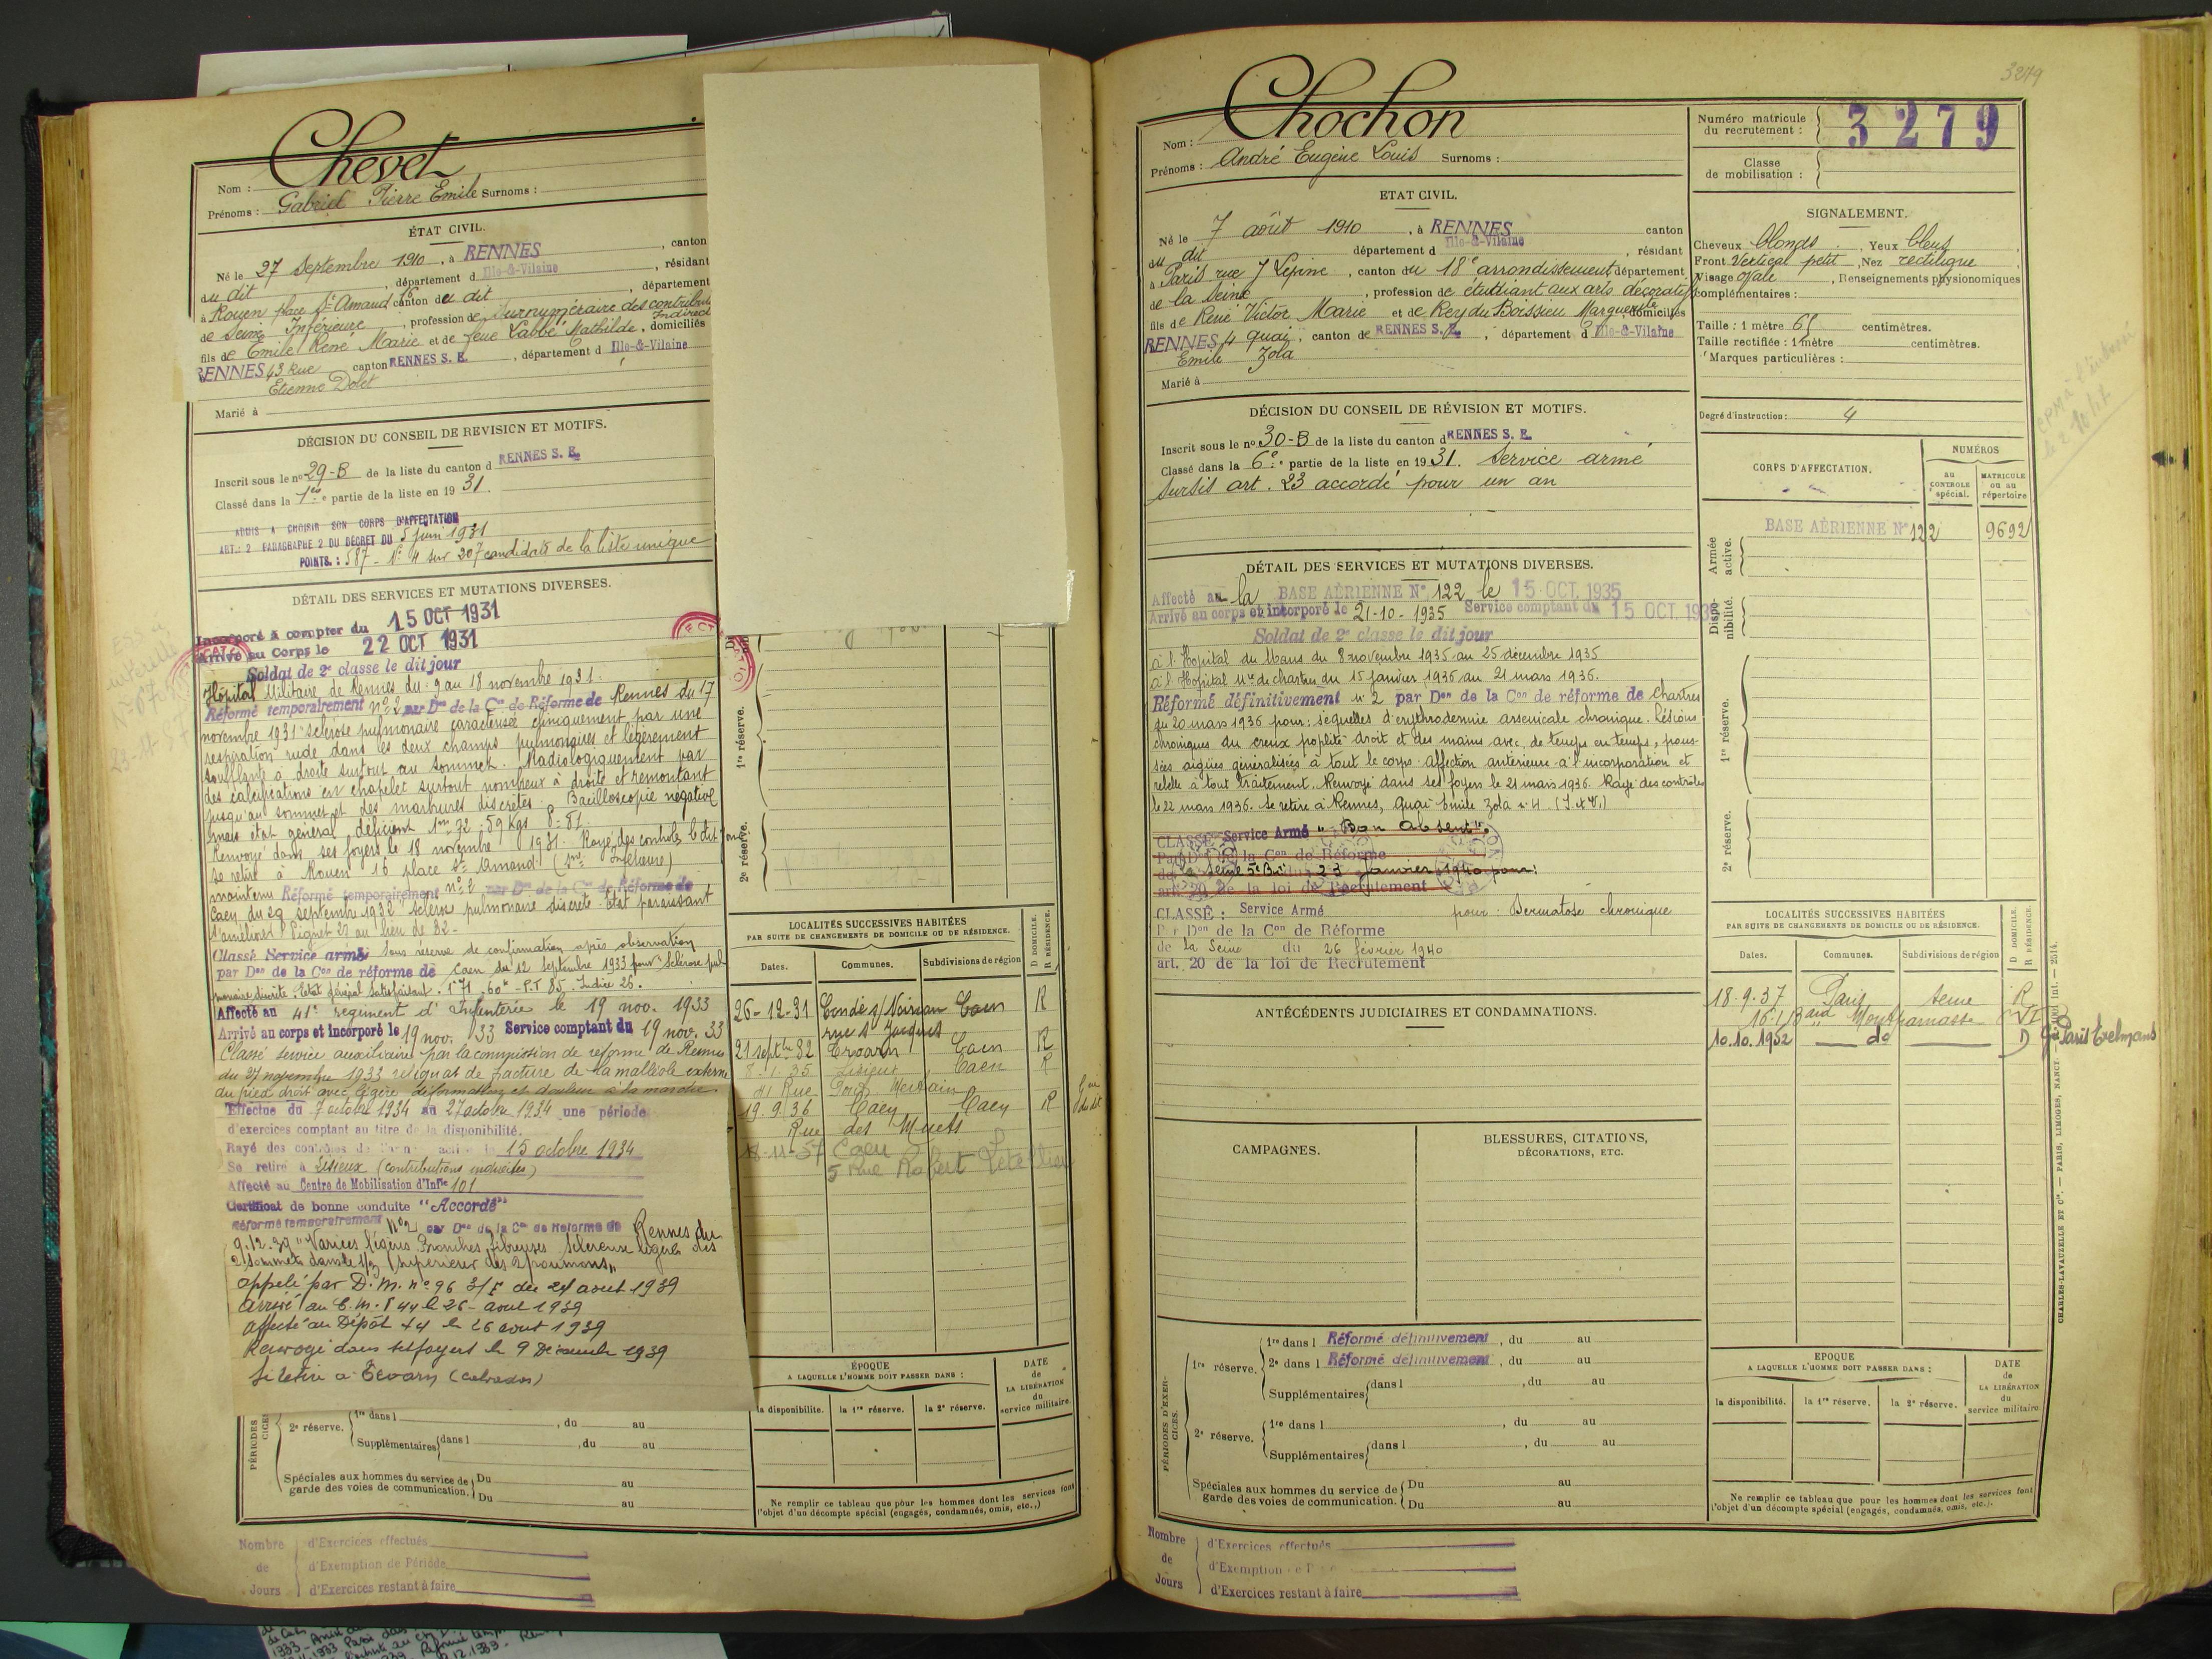 Nom : Chevet
Prénoms : Gabriel Pierre Emile Surnoms :
ÉTAT CIVIL.
Né le 27 Septembre 1910, à RENNES, canton
du dit, département d Ille-&-Vilaine, résidant
à Rouen place St Amand 16 canton de du dit, département
de Seine Inférieure, profession de Surnuméraire des contributions Indirectes
fils de Emile René Marie et de feue Labbé Mathilde, domiciliés
RENNES 43 Rue canton RENNES S. E., département d Ille-&-Vilaine
Etienne Dolet
Marié à
DÉCISION DU CONSEIL DE REVISION ET MOTIFS.
Inscrit sous le no 29-B de la liste du canton d RENNES S. E.
Classé dans la 1re partie de la liste en 1931.
ADMIS A CHOISIR SON CORPS D'AFFECTATION
ART.: 2 PARAGRAPHE 2 DU DÉCRET DU 5 juin 1931
POINTS. : 587 - N° 4 sur 207 candidats de la liste unique
DÉTAIL DES SERVICES ET MUTATIONS DIVERSES.
Incorporé à compter du 15 OCT 1931
Arrivé au Corps le 22 OCT 1931
Soldat de 2e classe le dit jour
Hôpital Militaire de Rennes du 9 au 18 novembre 1931.
Réformé temporairement N° 2 par Don de la Con de Réforme de Rennes du 17
novembre 1931 "Sclérose pulmonaire caractérisée cliniquement par une
respiration rude dans les deux champs pulmonaires et légèrement
soufflante à droite surtout au sommet. Radiologiquement par
des calcifications en chapelet surtout nombreux à droite et remontant
jusqu'au sommet et des marbrures discrètes. Bacilloscopie négative
mais état général déficient 1m 72 - 59 Kgs P = 81.
Renvoyé dans ses foyers le 18 novembre 1931. Rayé des contrôles le dit jour
se retire à Rouen 16 place St Amand (Sne Inférieure)
maintenu Réformé temporairement n° 2 par Don de la Con de Réforme de
Caen du 29 septembre 1932 "Sclérose pulmonaire discrète. Etat paraissant
s'améliorer Pignet 27 au lieu de 32 -
Classé Service armé sous réserve de confirmation après observation
par Don de la Con de réforme de Caen du 12 Septembre 1933 pour "Sclérose pul-
monaire discrète. Etat général satisfaisant. 1m71. 60k - P.T 85. Indice 26.
Affecté au 41e régiment d'Infanterie le 19 nov. 1933
Arrivé au corps et incorporé le 19 nov. 33 Service comptant du 19 nov. 33
Classé service auxiliaire par la commission de réforme de Rennes
du 27 novembre 1933 reliquat de fracture de la malléole externe
du pied droit avec légère déformation et douleur à la marche.
Effectue du 7 octobre 1934 au 27 octobre 1934 une période
d'exercices comptant au titre de la disponibilité.
Rayé des contrôles de l'armée active le 15 octobre 1934
Se retire à Lisieux (contributions indirectes)
Affecté au Centre de Mobilisation d'Infie 101
Certificat de bonne conduite "Accordé"
Réformé temporairement N° 2 par Don de la Con de Réforme de Rennes du
9.12.39 "Varices légères Bronches fibreuses Sclereuse légère des
2 sommets dans le 1/3 supérieur des 2 poumons"
appelé par D.M. n° 96 3/E du 24 aout 1939
Arrivé au C.M.I 44 le 26 aout 1939
affecté au Dépôt 44 le 26 aout 1939
Renvoyé dans ses foyers le 9 Décembre 1939
Se retire à Troarn (Calvados)
2e réserve. 1re dans l , du au
Supplémentaires dans l , du au
PÉRIODES D'EXERCICES
Spéciales aux hommes du service de garde des voies de communication. Du au
Du au
Nombre de Jours
d'Exercices effectués
d'Exemption de Période
d'Exercices restant à faire
1re réserve.
2e réserve.
LOCALITÉS SUCCESSIVES HABITÉES
PAR SUITE DE CHANGEMENTS DE DOMICILE OU DE RÉSIDENCE.
D DOMICILE. R RÉSIDENCE.
Dates. Communes. Subdivisions de région
26-12-31 Condé s/ Noireau Caen R
rue St Jacques
21 septbre 32 Troarn Caen R
8.1.35 Lisieux Caen R
41 Rue Pont Mortain
19.9.36 Caen Caen R
Rue des Muets
18-11-37 Caen
5 Rue Robert Letellier
ÉPOQUE
A LAQUELLE L'HOMME DOIT PASSER DANS :
DATE de LA LIBÉRATION du service militaire.
la disponibilité. la 1re réserve. la 2e réserve.
Ne remplir ce tableau que pour les hommes dont les services font
l'objet d'un décompte spécial (engagés, condamnés, omis, etc..)
3279
Nom : Chochon
Prénoms : André Eugène Louis Surnoms :
Numéro matricule du recrutement : 3279
Classe de mobilisation :
ETAT CIVIL.
Né le 7 août 1910, à RENNES canton
du dit département d Ille-&-Vilaine, résidant
à Paris rue J Lépine, canton du 18e arrondissement département
de la Seine, profession de étudiant aux arts décoratifs
fils de René Victor Marie et de Rey du Boissieu Marguerite domiciliés
RENNES 4 quai, canton de RENNES S.E., département d Ille-&-Vilaine
Emile Zola
Marié à
SIGNALEMENT.
Cheveux blonds. Yeux bleus
Front Vertical petit, Nez rectiligne
Visage ovale, Renseignements physionomiques
complémentaires :
Taille : 1 mètre 65 centimètres.
Taille rectifiée : 1 mètre centimètres.
Marques particulières :
Degré d'instruction : 4
DÉCISION DU CONSEIL DE RÉVISION ET MOTIFS.
Inscrit sous le no 30-B de la liste du canton d RENNES S. E.
Classé dans la 6e partie de la liste en 1931. Service armé
Sursis art. 23 accordé pour un an
DÉTAIL DES SERVICES ET MUTATIONS DIVERSES.
Affecté au la BASE AÉRIENNE N° 122 le 15 OCT. 1935
Arrivé au corps et incorporé le 21-10-1935 Service comptant du 15 OCT. 1935
Soldat de 2e classe le dit jour
à l'Hôpital du Mans du 8 novembre 1935 au 25 décembre 1935
à l'Hopital Mre de chartres du 15 janvier 1936 au 21 mars 1936.
Réformé définitivement n° 2 par Don de la Con de réforme de Chartres
du 20 mars 1936 pour : séquelles d'erythrodermie arsenicale chronique. Lésions
chroniques du creux poplité droit et des mains avec, de temps en temps, pous-
sées aigües généralisées à tout le corps. affection antérieure à l'incorporation et
rebelle à tout traitement. Renvoyé dans ses foyers le 21 mars 1936. Rayé des contrôles
le 22 mars 1936. Se retire à Rennes, quai Emile Zola n° 4.
CLASSÉ Service Armé "Bon absent"
Par Don de la Con de Réforme
de la Seine 5e Bau du 23 Janvier 1940 pour :
art. 20 de la loi de Recrutement
CLASSÉ : Service Armé pour : Dermatose chronique
Par Don de la Con de Réforme
de La Seine du 26 février 1940
art. 20 de la loi de Recrutement
ANTÉCÉDENTS JUDICIAIRES ET CONDAMNATIONS.
CAMPAGNES.
BLESSURES, CITATIONS, DÉCORATIONS, ETC.
PÉRIODES D'EXERCICES.
1re réserve. 1re dans l Réformé définitivement, du au
2e dans l Réformé définitivement, du au
Supplémentaires dans l , du au
2e réserve. 1re dans l , du au
Supplémentaires dans l , du au
Spéciales aux hommes du service de garde des voies de communication. Du au
Du au
Nombre de Jours
d'Exercices effectués
d'Exemption de P
d'Exercices restant à faire
CORPS D'AFFECTATION.
NUMÉROS
AU CONTROLE spécial. MATRICULE ou au répertoire
Armée active. BASE AÉRIENNE N° 122 9692
Disponibilité.
1re réserve.
2e réserve.
LOCALITÉS SUCCESSIVES HABITÉES
PAR SUITE DE CHANGEMENTS DE DOMICILE OU DE RÉSIDENCE.
D DOMICILE. R RÉSIDENCE.
Dates. Communes. Subdivisions de région
18.9.37 Paris Seine R
161 Bard Montparnasse VI
10.10.1952 do D Paris Exelmans
EPOQUE
A LAQUELLE L'HOMME DOIT PASSER DANS :
DATE de LA LIBÉRATION du service militaire
la disponibilité. la 1re réserve. la 2e réserve.
Ne remplir ce tableau que pour les hommes dont les services font
l'objet d'un décompte spécial (engagés, condamnés, omis, etc.).
CHARLES-LAVAUZELLE ET Cie. — PARIS, LIMOGES, NANCY
int. — 2514.